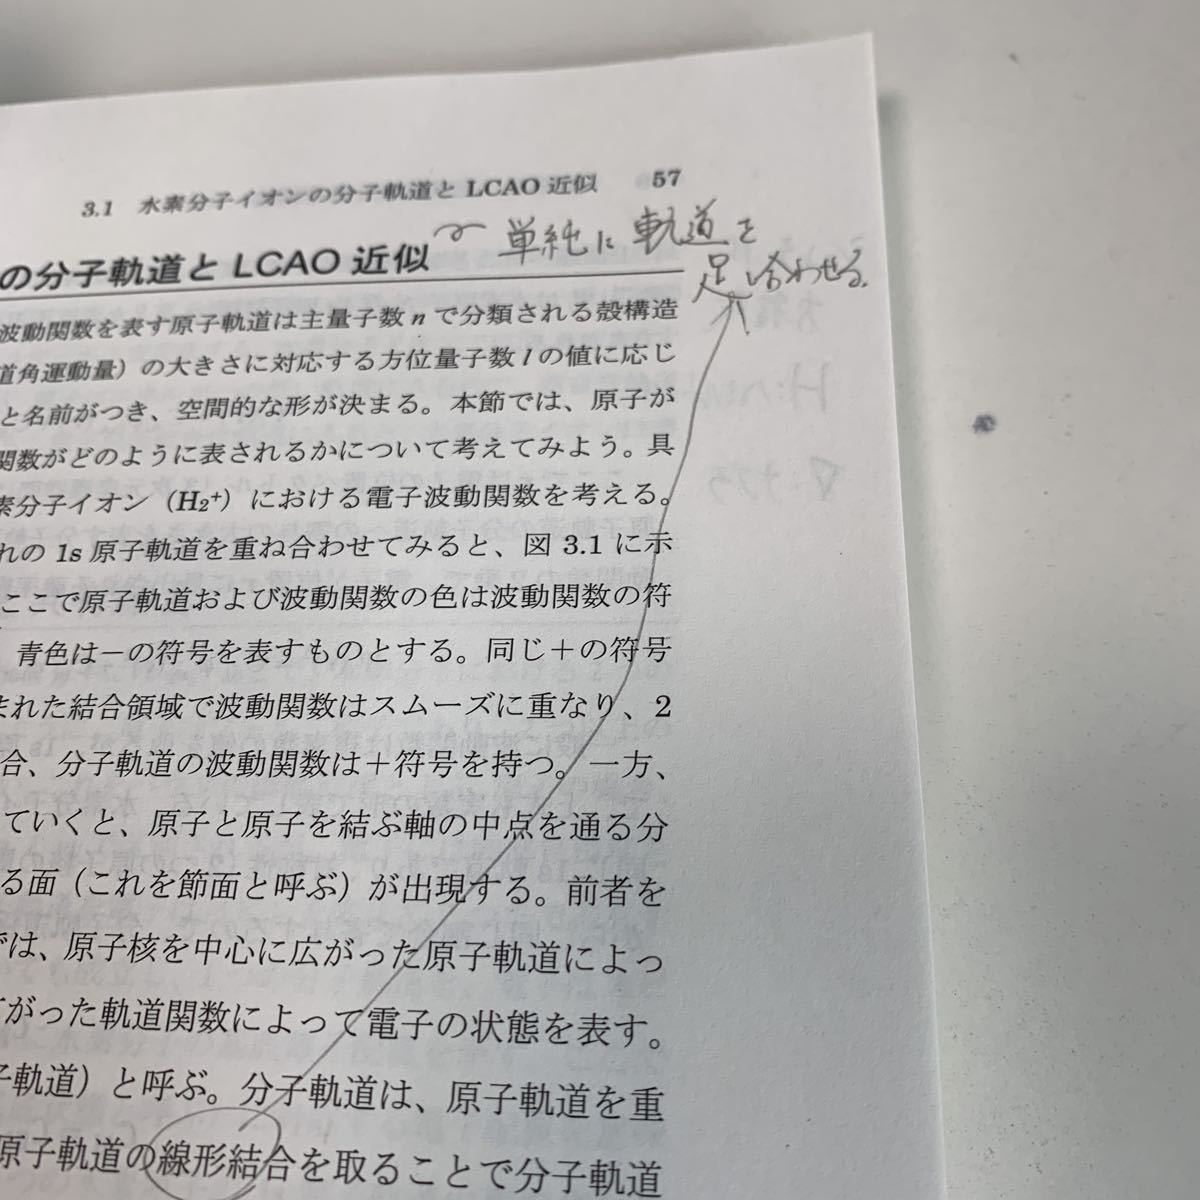 3.1 水素分子イオンの分子軌道と LCAO 近似 57
の分子軌道と LCAO 近似
単純に 軌道を
足し合わせる。
波動関数を表す原子軌道は主量子数 n で分類される殻構造
道角運動量）の大きさに対応する方位量子数 l の値に応じ
と名前がつき、空間的な形が決まる。本節では、原子が
関数がどのように表されるかについて考えてみよう。具
素分子イオン（H₂⁺）における電子波動関数を考える。
れの 1s 原子軌道を重ね合わせてみると、図 3.1 に示
ここで原子軌道および波動関数の色は波動関数の符
青色は－の符号を表すものとする。同じ＋の符号
まれた結合領域で波動関数はスムーズに重なり、2
合、分子軌道の波動関数は＋符号を持つ。一方、
ていくと、原子と原子を結ぶ軸の中点を通る分
る面（これを節面と呼ぶ）が出現する。前者を
では、原子核を中心に広がった原子軌道によっ
がった軌道関数によって電子の状態を表す。
子軌道）と呼ぶ。分子軌道は、原子軌道を重
原子軌道の線形結合を取ることで分子軌道